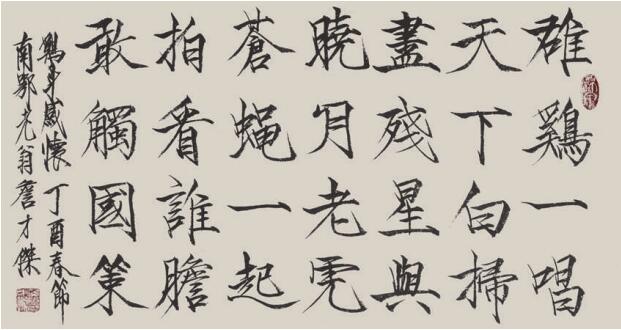 雄鷄一唱
天下白掃
盡殘星與
曉月老虎
蒼蝇一起
拍看誰膽
敢觸國策
鷄年感懷 丁酉春節
南鄂老翁詹才傑